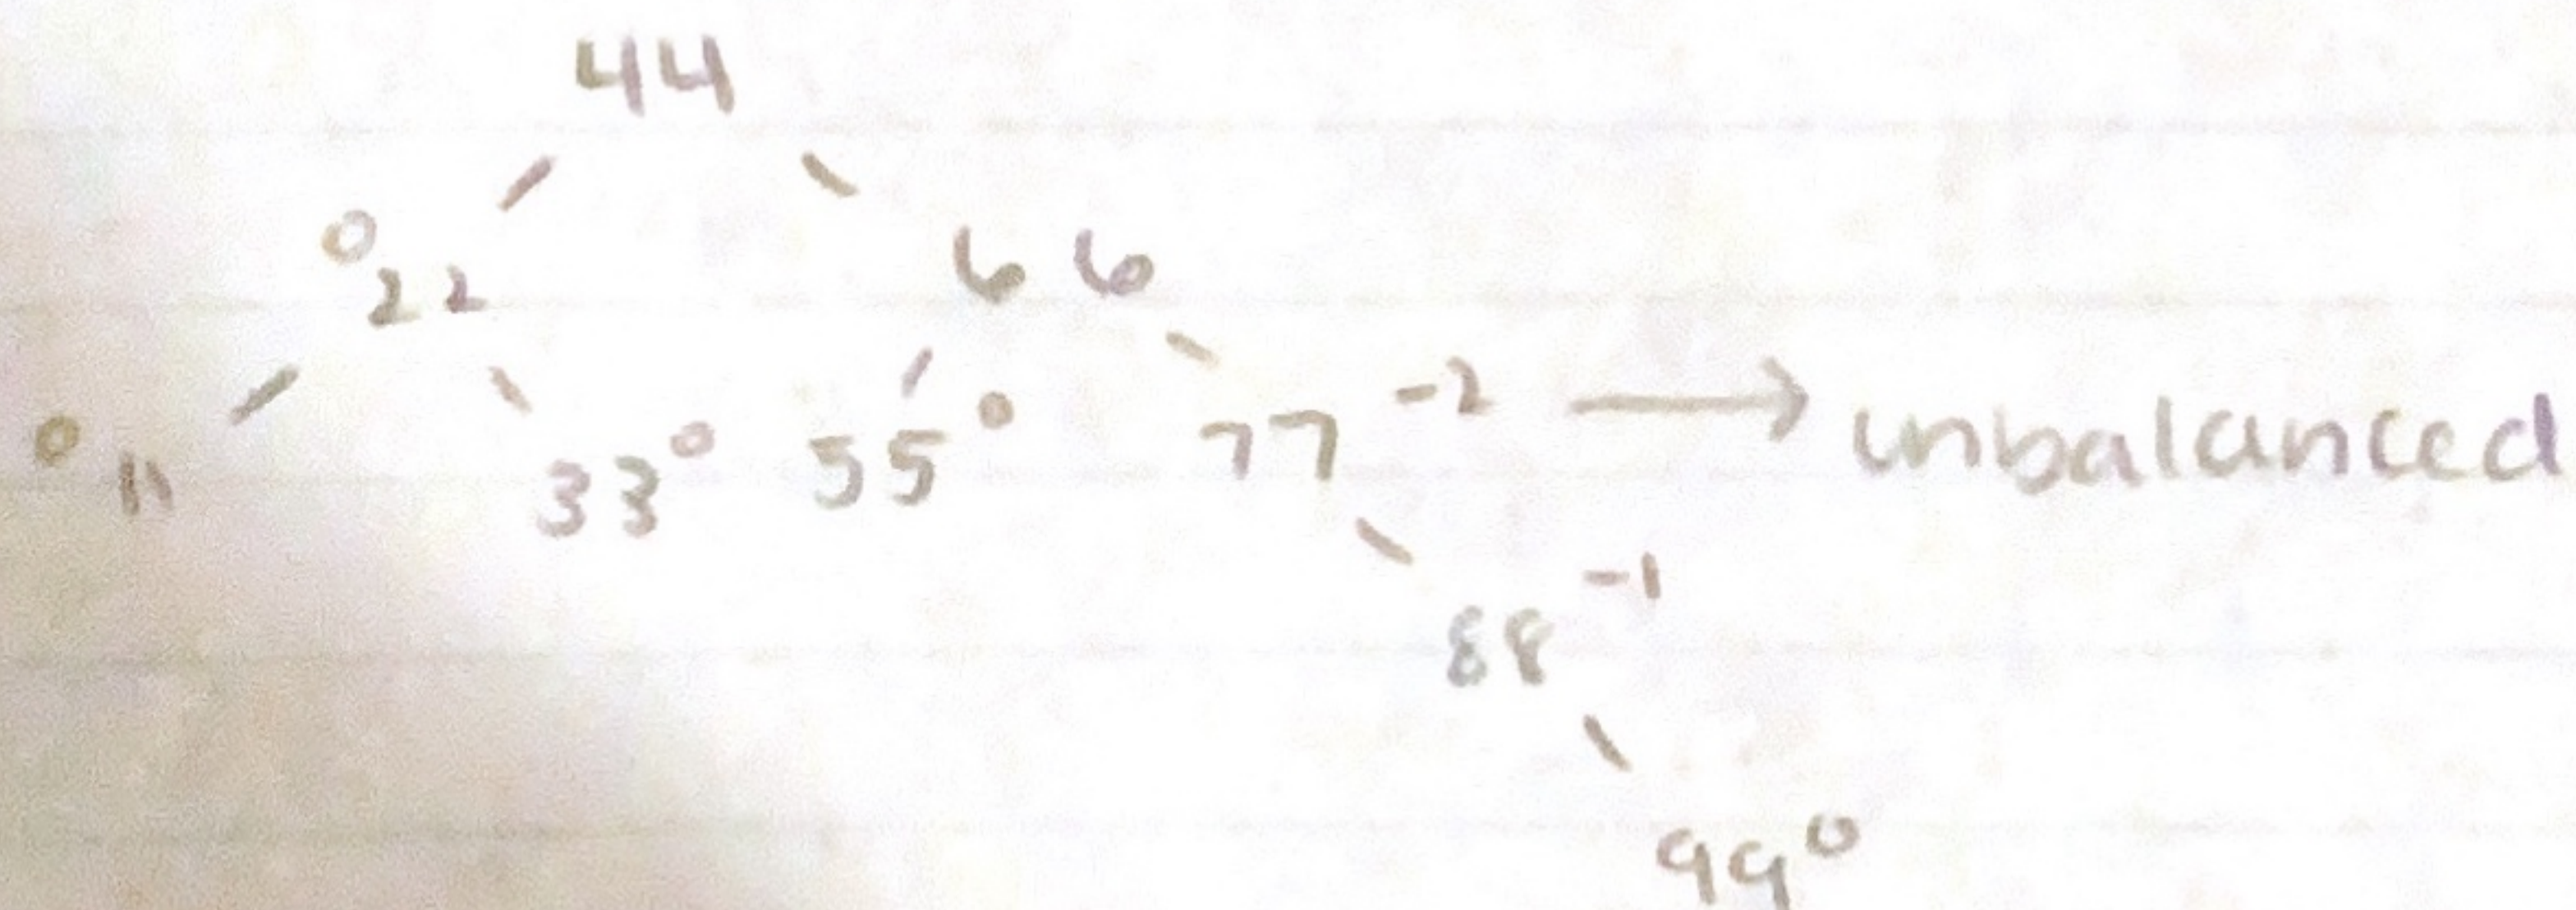 44
0 22 66
0 11 33 0 55 0 77 -2 → unbalanced
88 -1
99 0